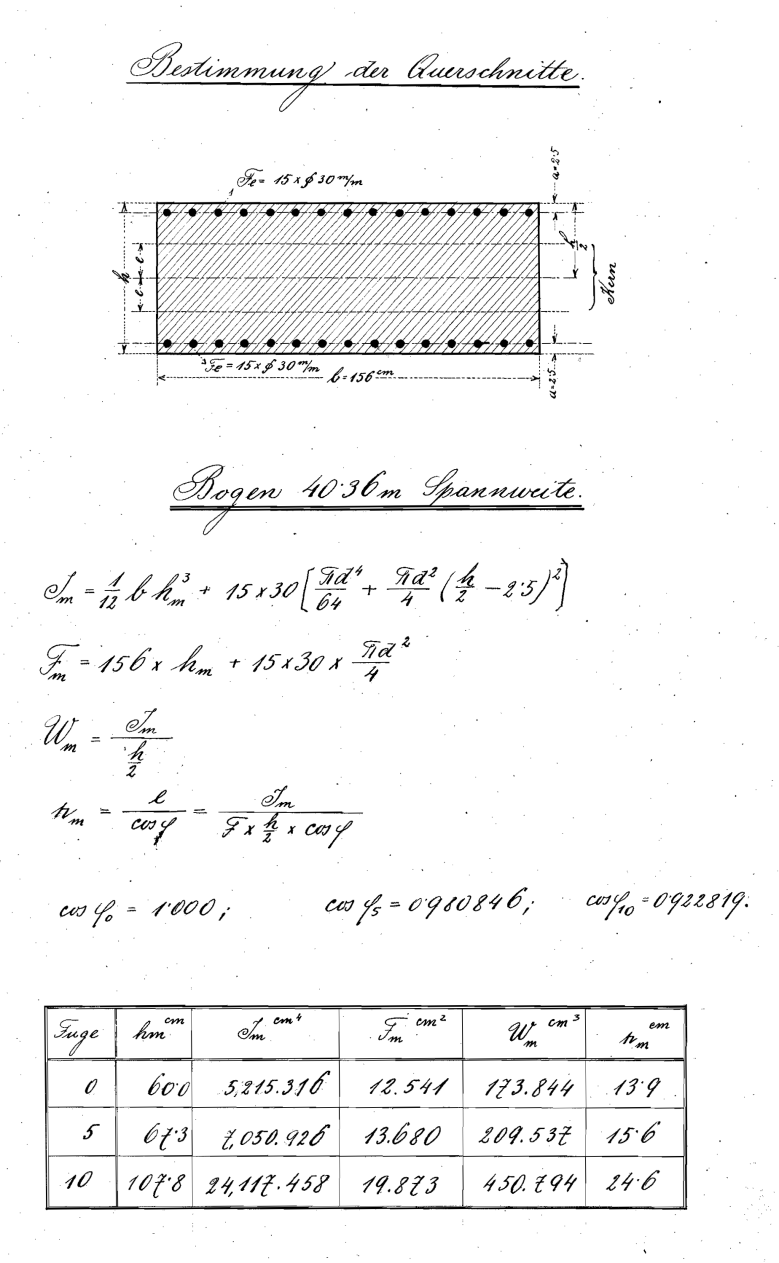 Bestimmung der Querschnitte.
Fe = 15 x ϕ 30 m/m
a=2·5
h
e
e
h/2
Kern
Fe = 15 x ϕ 30 m/m
b=156 cm
a=2·5
Bogen 40·36 m Spannweite.
J_m = 1/12 b h_m^3 + 15 x 30 [πd^4/64 + πd^2/4 (h/2 - 2·5)^2]
F_m = 156 x h_m + 15 x 30 x πd^2/4
W_m = J_m / (h/2)
r_m = e/cos φ = J_m / (F x h/2 x cos φ)
cos φ_0 = 1·000; cos φ_5 = 0·980846; cos φ_10 = 0·922819.
Fuge hm cm J_m cm^4 F_m cm^2 W_m cm^3 r_m cm
0 60·0 5,215.316 12.541 173.844 13·9
5 67·3 7,050.926 13.680 209.537 15·6
10 107·8 24,117.458 19.873 450.794 24·6